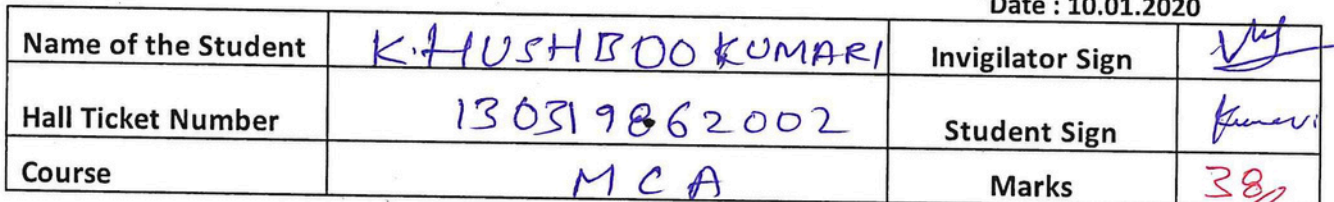 Date : 10.01.2020
Name of the Student K.HUSHBOO KUMARI Invigilator Sign
Hall Ticket Number 130319862002 Student Sign Kumari
Course MCA Marks 38